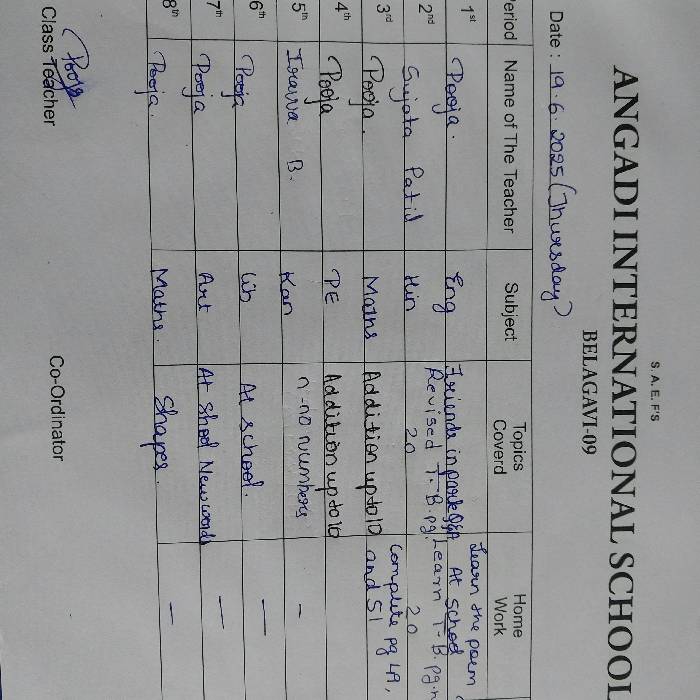 S. A. E. F'S
ANGADI INTERNATIONAL SCHOOL
BELAGAVI-09
Date : 19.6.2025 (Thursday)
Period Name of The Teacher Subject Topics Coverd Home Work
1st Pooja. Eng Friends in park Q&A Learn the poem At school
2nd Sujata Patil Hin Revised T.B. pg. 20 Learn T.B. pg. 20
3rd Pooja. Maths Addition up to 10 Complete pg 49, and 51
4th Pooja PE Addition up to 10
5th B. Kan n-no numbers -
6th Pooja Lib At school. -
7th Pooja Art At Shool New words -
8th Pooja. Maths. Shapes. -
Pooja
Class Teacher Co-Ordinator